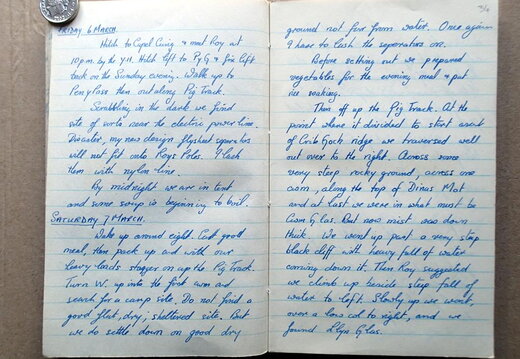 FRIDAY 6 MARCH.
Hitch to Capel Curig & meet Roy at
10 p.m. by the Y.H. Hitch lift to P y G & fix lift
back on the Sunday evening. Walk up to
Pen y Pass then out along Pig Track.
Scrabbling in the dark we find
site of sorts near the electric power line.
Disaster, my new design flysheet separators
will not fit onto Roys Poles. I lash
them with nylon line.
By midnight we are in tent
and some soup is beginning to boil.
SATURDAY 7 MARCH.
Wake up around eight. Cook good
meal, then pack up and with our
heavy loads stagger on up the Pig Track.
Turn W. up into the first cwm and
search for a camp site. Do not find a
good flat, dry, sheltered site. But
we do settle down on good dry
34
ground not far from water. Once again
I have to lash the separators on.
Before setting out we prepared
vegetables for the evening meal & put
ice soaking.
Then off up the Pig Track. At the
point where it divided to start ascent
of Crib Goch ridge we traversed well
out over to the right. Across some
very steep rocky ground, across one
cwm, along the top of Dinas Mot
and at last we were in what must be
Cwm Glas. But now mist was down
thick. We went up past a very steep
black cliff with heavy fall of water
coming down it. Then Roy suggested
we climb up beside steep fall of
water to left. Slowly up we went,
over a low col to right, and we
found Llyn Glas.